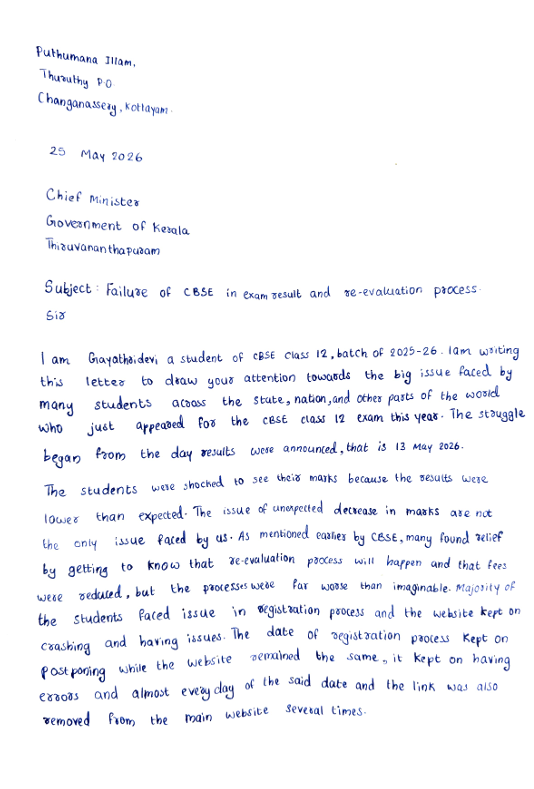 Puthumana Illam,
Thuruthy P.O.
Changanassery, Kottayam.
25 May 2026
Chief Minister
Government of Kerala
Thiruvananthapuram
Subject: Failure of CBSE in exam result and re-evaluation process.
Sir
I am Gayathridevi a student of CBSE class 12, batch of 2025-26. I am writing
this letter to draw your attention towards the big issue faced by
many students across the state, nation, and other parts of the world
who just appeared for the CBSE class 12 exam this year. The struggle
began from the day results were announced, that is 13 May 2026.
The students were shocked to see their marks because the results were
lower than expected. The issue of unexpected decrease in marks are not
the only issue faced by us. As mentioned earlier by CBSE, many found relief
by getting to know that re-evaluation process will happen and that fees
were reduced, but the processes were far worse than imaginable. Majority of
the students faced issue in registration process and the website kept on
crashing and having issues. The date of registration process kept on
postponing while the website remained the same, it kept on having
errors and almost every day of the said date and the link was also
removed from the main website several times.